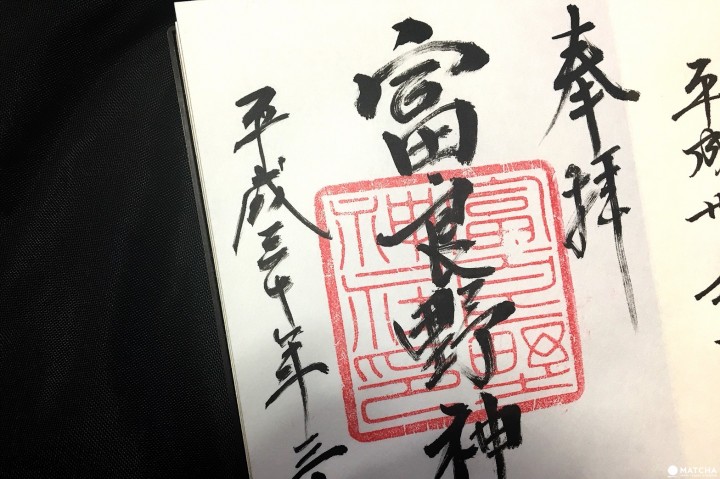 奉拝
富良野神
平成三十年三
平成廿
MATCHA